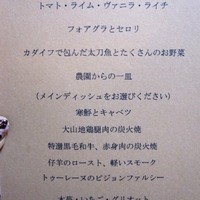 トマト・ライム・ヴァニラ・ライチ
フォアグラとセロリ
カダイフで包んだ太刀魚とたくさんのお野菜
農園からの一皿
(メインディッシュをお選びください)
寒鰤とキャベツ
大山地鶏腿肉の炭火焼
特選黒毛和牛、赤身肉の炭火焼
仔羊のロースト、軽いスモーク
トゥーレーヌのピジョンファルシー